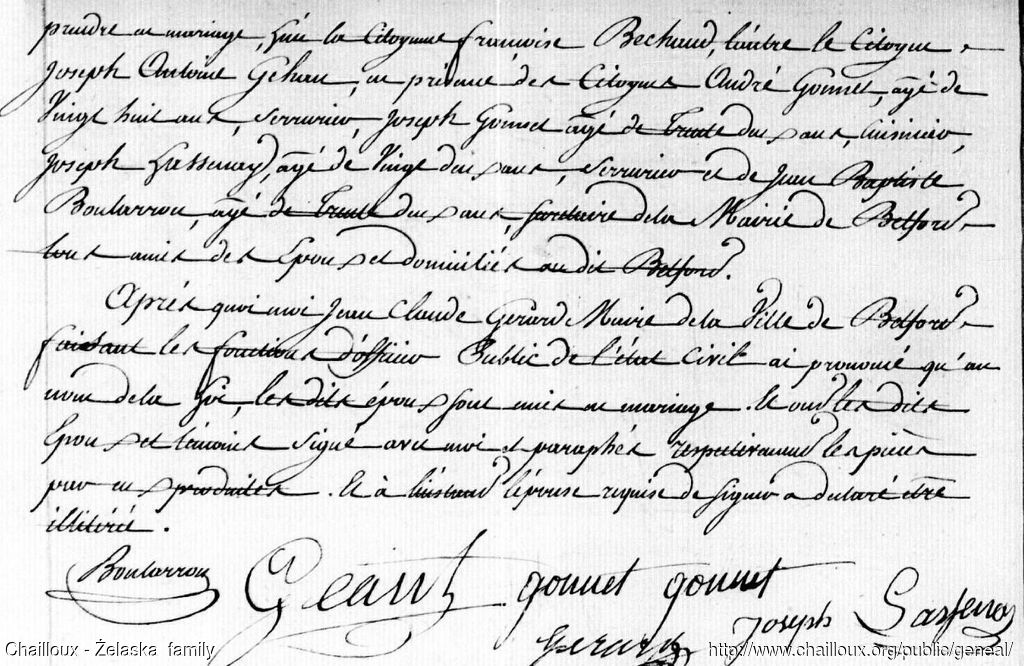 prendre en mariage, l'une la Citoyenne francoise Bechaud, l'autre le Citoyen
Joseph Antoine Gehan, en présence des Citoyens André Gonnet, agé de
Vingt huit ans, Serrurier, Joseph Gonnet agé de Trente deux ans, Cuisinier,
Joseph Lassenay, agé de Vingt deux ans, Serrurier et de Jean Baptiste
Boularrou, agé de Trente deux ans, secrétaire de la Mairie de Belford
tous amis des Epoux et domiciliés au dit Belford.
Après quoi moi Jean Claude Gerard Maire de la Ville de Belford
faisant les fonctions d'officier Public de l'état Civil ai prononcé qu'au
nom de la Loi, les dits époux sont unis en mariage. Et ont les dits
Epoux et témoins signé avec moi et paraphés respectivement les pièces
par eux produites. Et à l'instant l'épouse requise de signer a declaré etre
illitérée.
Boularrou Geant gonnet gonnet
Gerard Joseph Lassenay
Chailloux - Żelaska family http://www.chailloux.org/public/geneal/